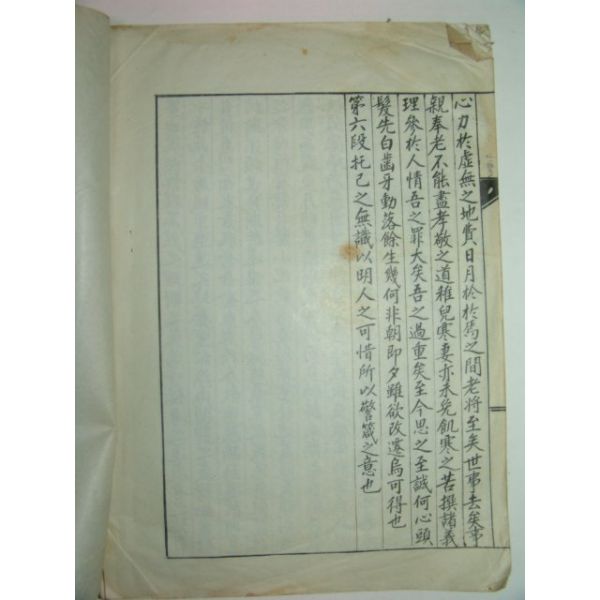 心力於虛無之地費日月於於焉之間老將至矣世事去矣事
親奉老不能盡孝敬之道稚兒寒妻亦未免飢寒之苦撰諸義
理參於人情吾之罪大矣吾之過重矣至今思之至誠何心頭
髮先白齒牙動落餘生幾何非朝即夕雖欲改遷烏可得也
第六段托己之無識以明人之可惜所以警箴之意也